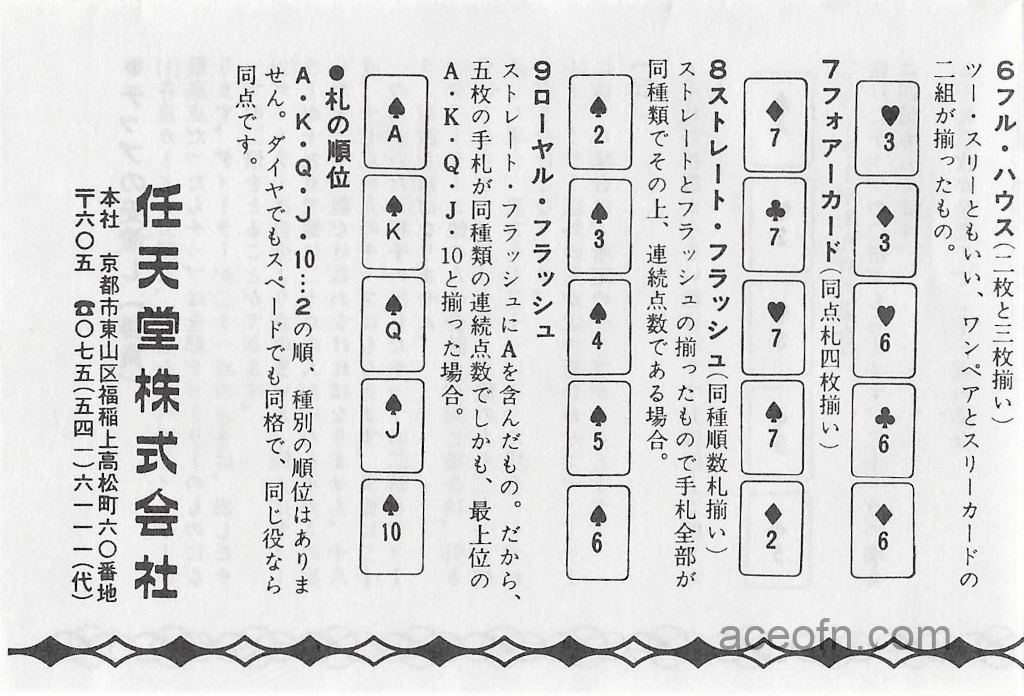 6フル・ハウス(二枚と三枚揃い)
ツー・スリーともいい、ワンペアとスリーカードの
二組が揃ったもの。
♥3
♦3
♥6
♣6
♦6
7フォアーカード(同点札四枚揃い)
♦7
♣7
♥7
♠7
♦2
8ストレート・フラッシュ(同種順数札揃い)
ストレートとフラッシュの揃ったもので手札全部が
同種類でその上、連続点数である場合。
♠2
♠3
♠4
♠5
♠6
9ローヤル・フラッシュ
ストレート・フラッシュにAを含んだもの。だから、
五枚の手札が同種類の連続点数でしかも、最上位の
A・K・Q・J・10と揃った場合。
♠A
♠K
♠Q
♠J
♠10
●札の順位
A・K・Q・J・10…2の順、種別の順位はありま
せん。ダイヤでもスペードでも同格で、同じ役なら
同点です。
任天堂株式会社
本社 京都市東山区福稲上高松町六〇番地
〒六〇五 ☎〇七五(五四一)六一一一(代)
aceofn.com